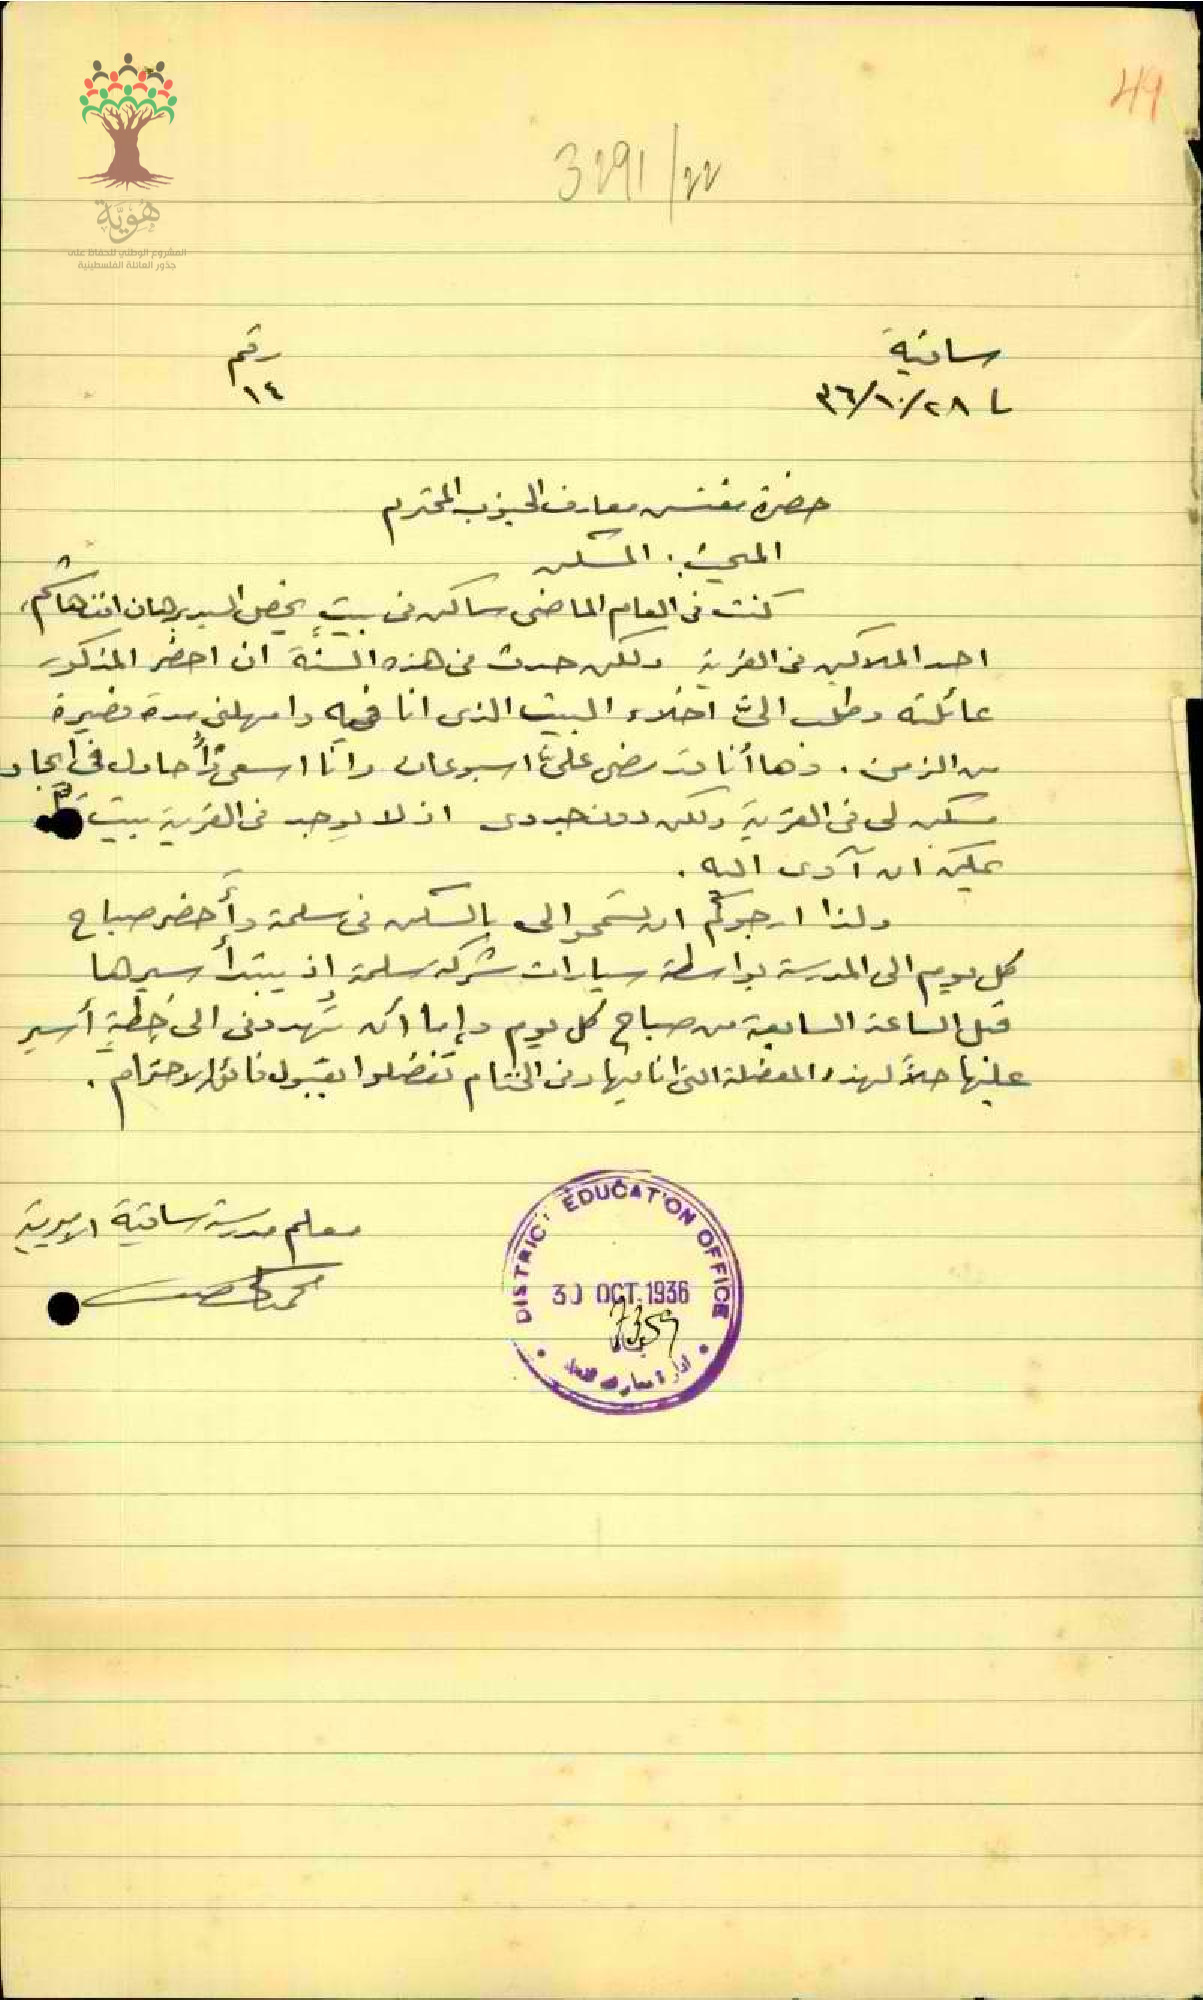 49
3291/22
هوية
المشروع الوطني للحفاظ على
جذور العائلة الفلسطينية
ساقية
رقم
٢٨/١٠/٣٦
١٤
حضرة مفتش معارف الجنوب المحترم
المبحث: السكن
كنت في العام الماضي ساكن في بيت يخص السيد برهان افندي هاشم،
احد الملاكين في القرية ولكن حدث في هذه السنة ان احضر المذكور
عائلته وطلب اليّ اخلاء البيت الذي انا فيه وامهلني مدة قصيرة
من الزمن. وها أنا قد مضى عليّ اسبوعان وانا اسعى وأحاول في ايجاد
مسكن لي في القرية ولكن دون جدوى اذ لا يوجد في القرية بيت
يمكن ان آوى اليه.
ولذا ارجوكم ان تسمحوا لي بالسكن في سلمة وأحضر صباح
كل يوم الى المدرسة بواسطة سيارات شركة سلمة إذ يبتدأ سيرها
قبل الساعة السابعة من صباح كل يوم وإما أن تهدوني الى خطةٍ أسير
عليها حلاً لهذه المعضلة التي انا فيها وفي الختام تفضلوا بقبول فائق الاحترام.
معلم مدرسة ساقية الاميرية
DISTRICT EDUCATION OFFICE
30 OCT. 1936
7359
ادارة معارف